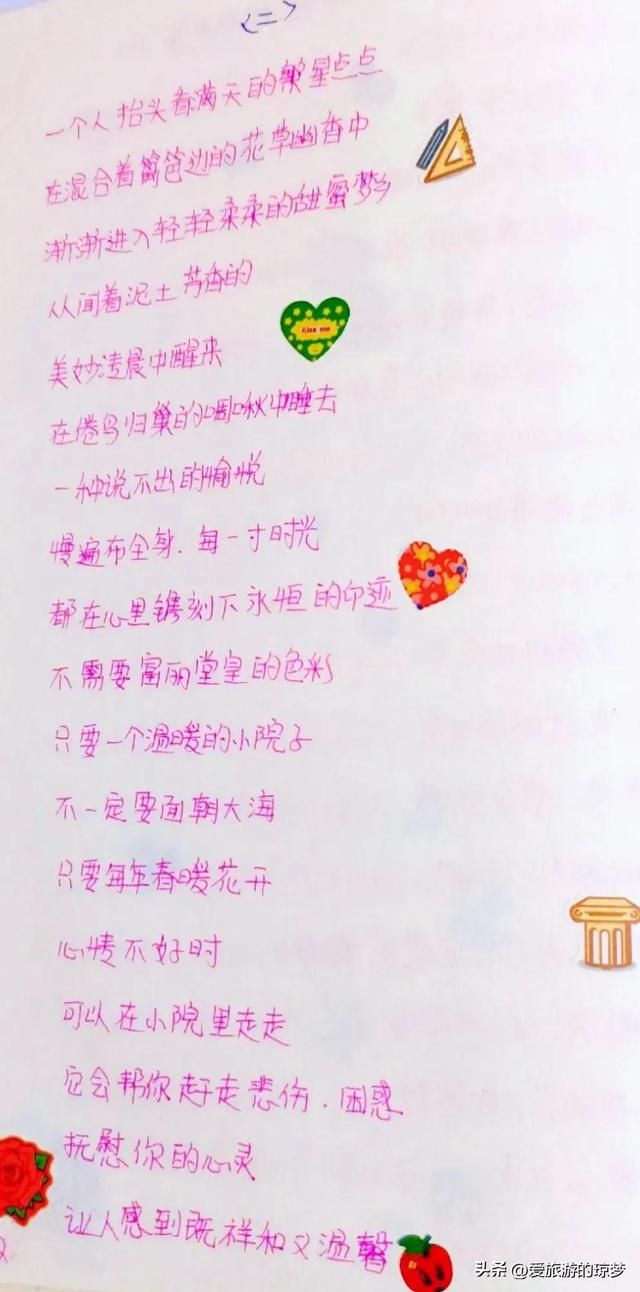 （二）
一个人抬头看满天的繁星点点
在混合着篱笆边的花草幽香中
渐渐进入轻轻柔柔的甜蜜梦乡
从闻着泥土芳香的
Kiss me
美妙凌晨中醒来
在倦鸟归巢的啁啾中睡去
一种说不出的愉悦
慢遍布全身.每一寸时光
都在心里镌刻下永恒的印迹
不需要富丽堂皇的色彩
只要一个温暖的小院子
不一定要面朝大海
只要每年春暖花开
心情不好时
可以在小院里走走
它会帮你赶走悲伤.困惑
抚慰你的心灵
让人感到既祥和又温馨
头条 @爱旅游的琼梦